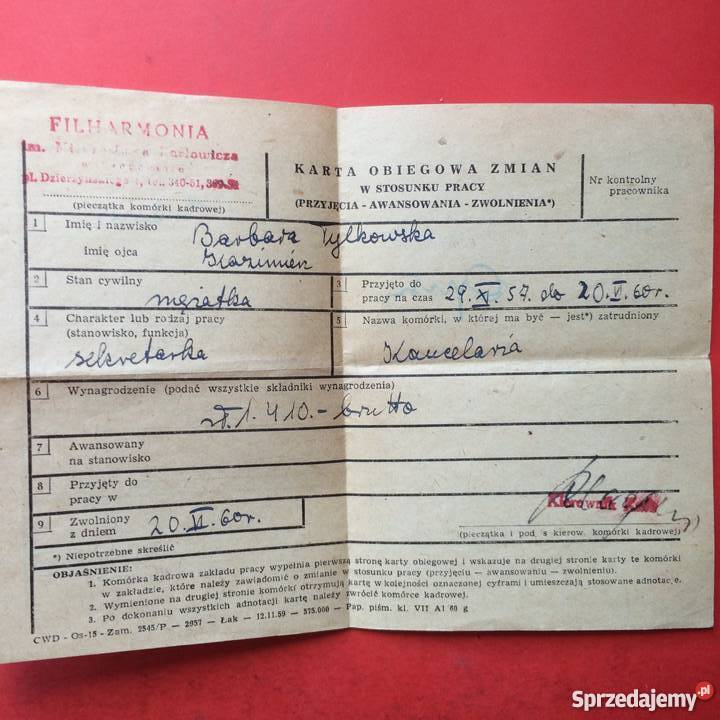 FILHARMONIA
im. Karłowicza
pl. Dzierżyńskiego 1, tel. 340-51,
(pieczątka komórki kadrowej)
KARTA OBIEGOWA ZMIAN
W STOSUNKU PRACY
(PRZYJĘCIA - AWANSOWANIA - ZWOLNIENIA*)
Nr kontrolny
pracownika
1 Imię i nazwisko Barbara Tylkowska
imię ojca Kazimierz
2 Stan cywilny
mężatka
3 Przyjęto do
pracy na czas 29.XI.57. do 20.VI.60r.
4 Charakter lub rodzaj pracy
(stanowisko, funkcja)
sekretarka
5 Nazwa komórki, w której ma być — jest*) zatrudniony
Kancelaria
6 Wynagrodzenie (podać wszystkie składniki wynagrodzenia)
zł. 1.410.- brutto
7 Awansowany
na stanowisko
8 Przyjęty do
pracy w
9 Zwolniony
z dniem 20.VI.60r.
Kierownik
(pieczątka i pod s kierow. komórki kadrowej)
*) Niepotrzebne skreślić
OBJAŚNIENIE:
1. Komórka kadrowa zakładu pracy wypełnia pierwszą stronę karty obiegowej i wskazuje na drugiej stronie karty te komórki
w zakładzie, które należy zawiadomić o zmianie w stosunku pracy (przyjęciu — awansowaniu — zwolnieniu).
2. Wymienione na drugiej stronie komórki otrzymują kartę w kolejności oznaczonej cyframi i umieszczają stosowane adnotacje.
3. Po dokonaniu wszystkich adnotacji kartę należy zwrócić komórce kadrowej.
CWD - Os-15 - Zam. 2545/P — 2957 — Łak — 12.11.59 — 575.000 — Pap. piśm. kl. VII A1 60 g
Sprzedajemy.pl